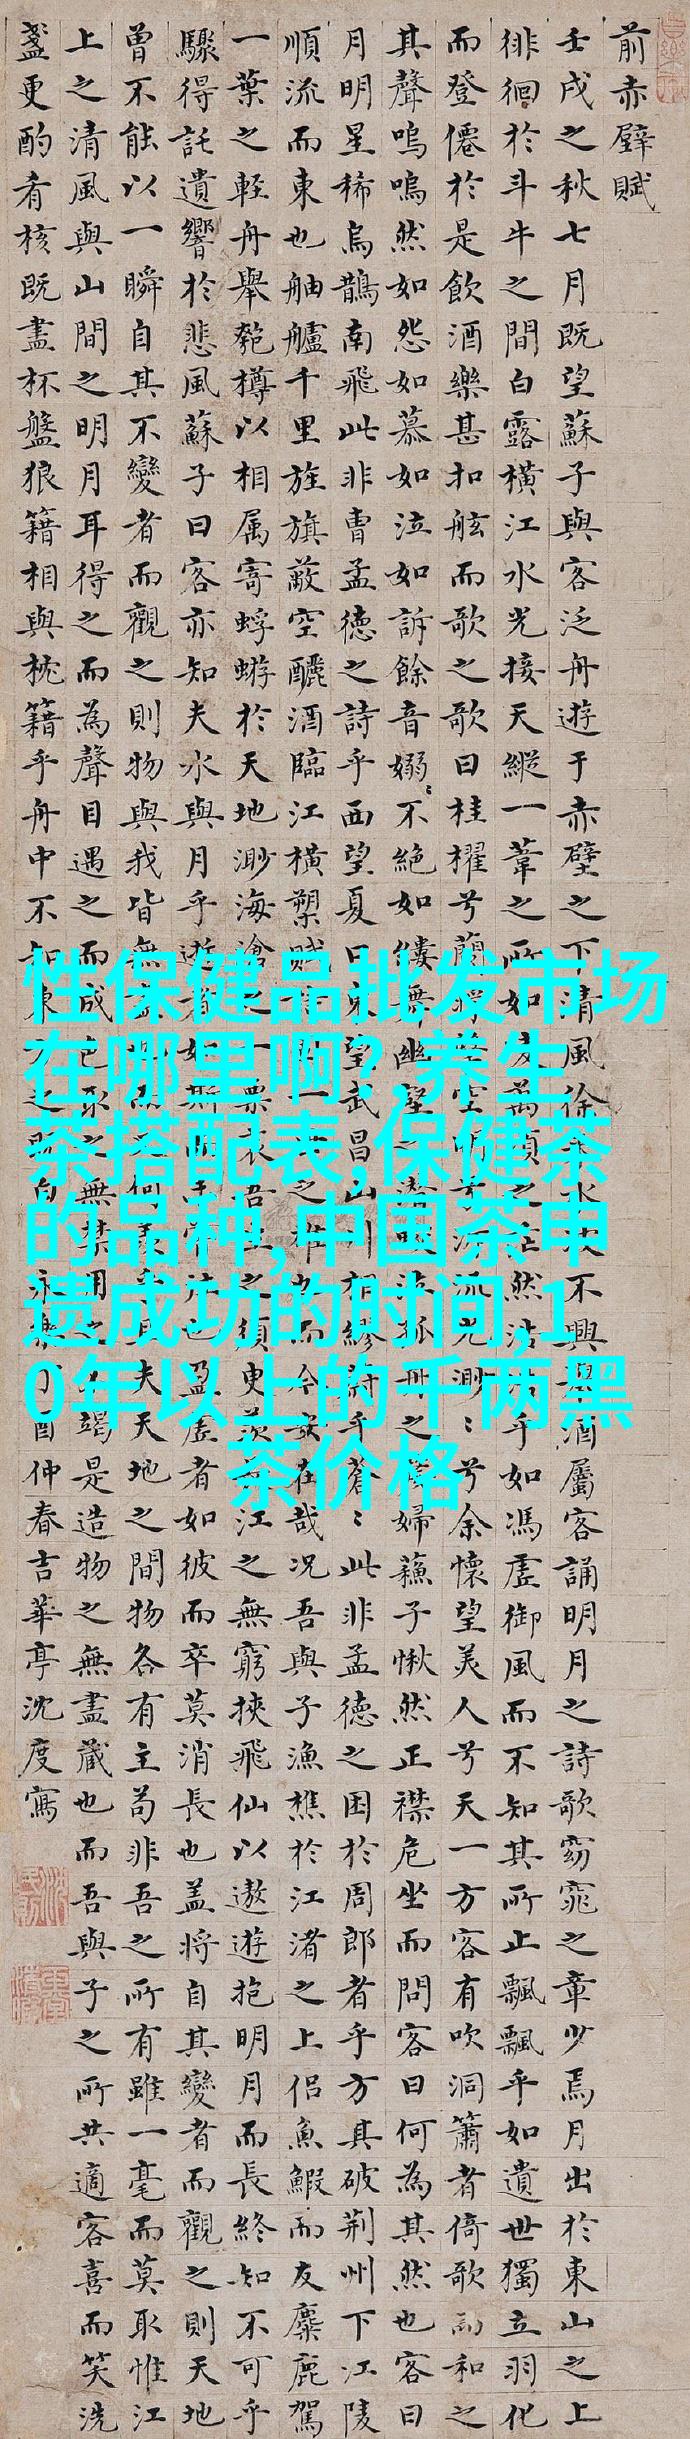 前赤壁賦
壬戌之秋七月既望蘇子與客泛舟遊于赤壁之下清風徐來水波不興舉酒屬客誦明月之詩歌窈窕之章少焉月出於東山之上
徘徊於斗牛之間白露橫江水光接天縱一葦之所如凌萬頃之茫然浩浩乎如馮虛御風而不知其所止飄飄乎如遺世獨立羽化
而登僊於是飲酒樂甚扣舷而歌之歌曰桂櫂兮蘭槳擊空明兮泝流光渺〻兮余懷望美人兮天一方客有吹洞簫者倚歌而和之
其聲嗚嗚然如怨如慕如泣如訴餘音嫋〻不絕如縷舞幽壑之潛蛟泣孤舟之嫠婦蘇子愀然正襟危坐而問客曰何為其然也客曰
月明星稀烏鵲南飛此非曹孟德之詩乎西望夏口東望武昌山川相繆鬱乎蒼〻此非孟德之困於周郎者乎方其破荊州下江陵
順流而東也舳艫千里旌旗蔽空釃酒臨江橫槊賦詩固一世之雄也而今安在哉況吾與子漁樵於江渚之上侶魚鰕而友麋鹿駕
一葉之輕舟舉匏樽以相属寄蜉蝣於天地渺海滄之一粟哀吾生之須臾羨長江之無窮挾飛仙以遨遊抱明月而長終知不可乎
驟得託遺響於悲風蘇子曰客亦知夫水與月乎逝者如斯而未嘗往也盈虛者如彼而卒莫消長也蓋將自其變者而觀之則天地
曾不能以一瞬自其不變者而觀之則物與我皆無盡也而又何羨乎且夫天地之間物各有主苟非吾之所有雖一毫而莫取惟江
上之清風與山間之明月耳得之而為聲目遇之而成色取之無禁用之不竭是造物之無盡藏也而吾與子之所共適客喜而笑洗
盞更酌肴核既盡杯盤狼籍相與枕籍乎舟中不知東方之既白永樂丁酉仲春吉華亭沈度寫
性保健品批发市场
在哪里啊?,养生
茶搭配表,保健茶
的品种,中国茶申
遗成功的时间,1
0年以上的千两黑
茶价格